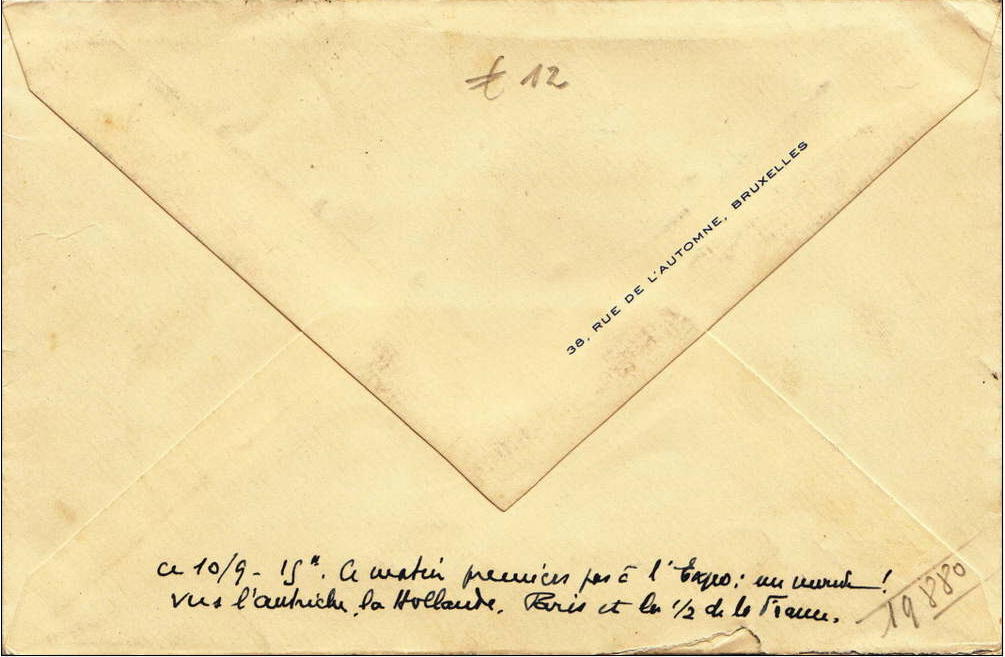 € 12
38, RUE DE L'AUTOMNE, BRUXELLES
ce 10/9 - 15". Ce matin premiers pas à l'Expo: un monde!
Vus l'autriche, la Hollande, Paris et la 1/2 de la France.
19880